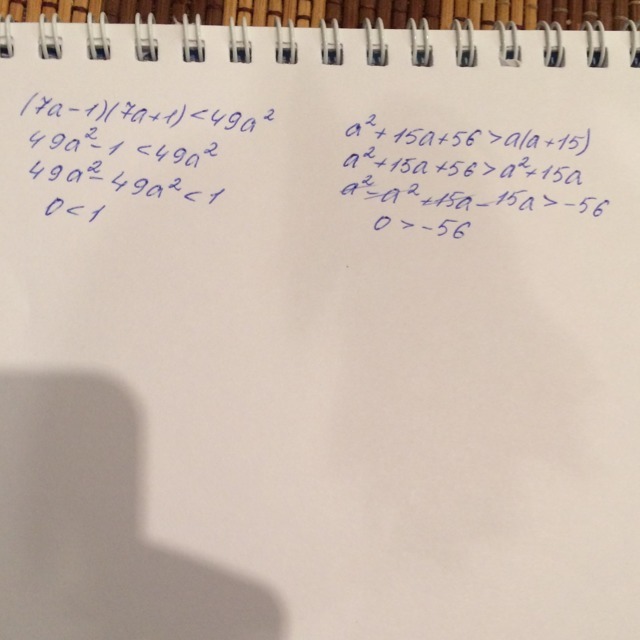 (7a-1)(7a+1)<49a²
49a²-1<49a²
49a²-49a²<1
0<1
a²+15a+56>a(a+15)
a²+15a+56>a²+15a
a²-a²+15a-15a>-56
0>-56